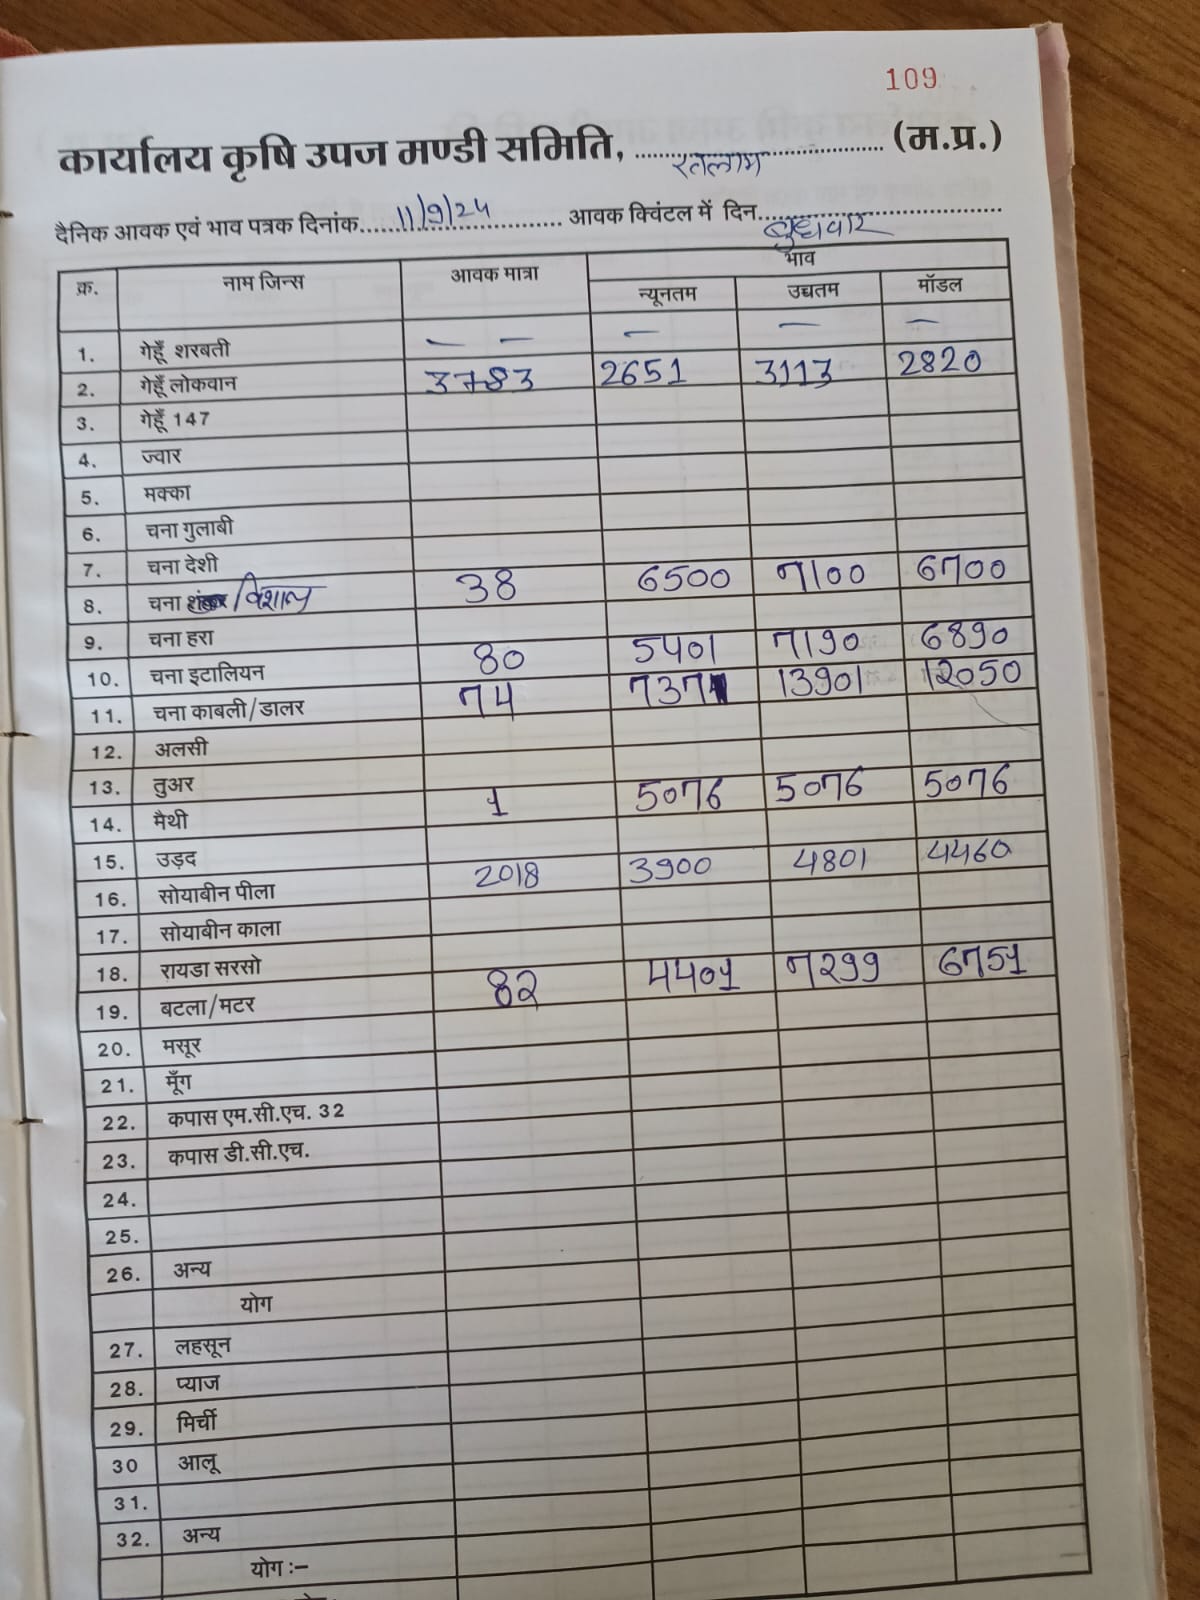 109
कार्यालय कृषि उपज मण्डी समिति, रतलाम (म.प्र.)
दैनिक आवक एवं भाव पत्रक दिनांक 11/9/24 आवक क्विंटल में दिन बुधवार
क्र. नाम जिन्स आवक मात्रा भाव
न्यूनतम उच्चतम मॉडल
1. गेहूँ शरबती — — — — —
2. गेहूँ लोकवान 3783 2651 3113 2820
3. गेहूँ 147
4. ज्वार
5. मक्का
6. चना गुलाबी
7. चना देशी
8. चना /विशाल 38 6500 7100 6700
9. चना हरा
10. चना इटालियन 80 5401 7190 6890
11. चना काबली/डालर 74 7371 13901 12050
12. अलसी
13. तुअर
14. मैथी 1 5076 5076 5076
15. उड़द
16. सोयाबीन पीला 2018 3900 4801 4460
17. सोयाबीन काला
18. रायडा सरसो
19. बटला/मटर 82 4401 7299 6751
20. मसूर
21. मूँग
22. कपास एम.सी.एच. 32
23. कपास डी.सी.एच.
24.
25.
26. अन्य
योग
27. लहसून
28. प्याज
29. मिर्ची
30 आलू
31.
32. अन्य
योग :–